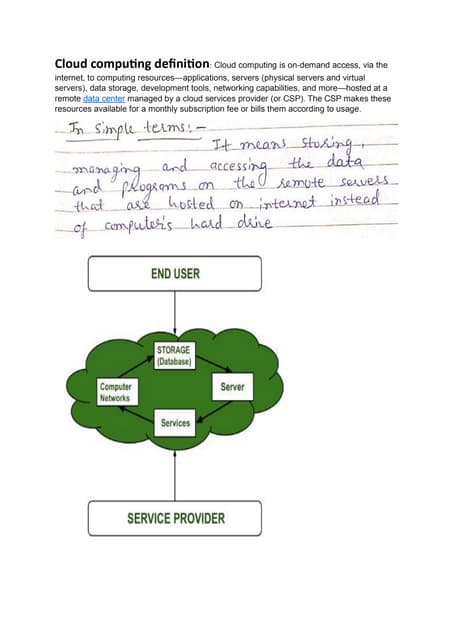 Cloud computing definition: Cloud computing is on-demand access, via the
internet, to computing resources—applications, servers (physical servers and virtual
servers), data storage, development tools, networking capabilities, and more—hosted at a
remote data center managed by a cloud services provider (or CSP). The CSP makes these
resources available for a monthly subscription fee or bills them according to usage.
In simple terms:-
It means storing,
managing and accessing the data
and programs on the remote servers
that are hosted on internet instead
of computer's hard drive
END USER
STORAGE
(Database)
Computer
Networks
Server
Services
SERVICE PROVIDER